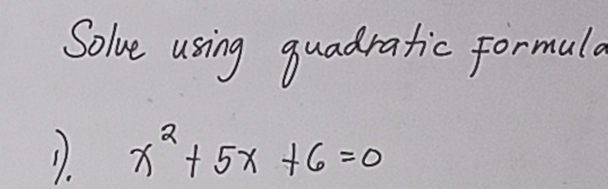 Solve using quadratic formula
1). x² + 5x + 6 = 0